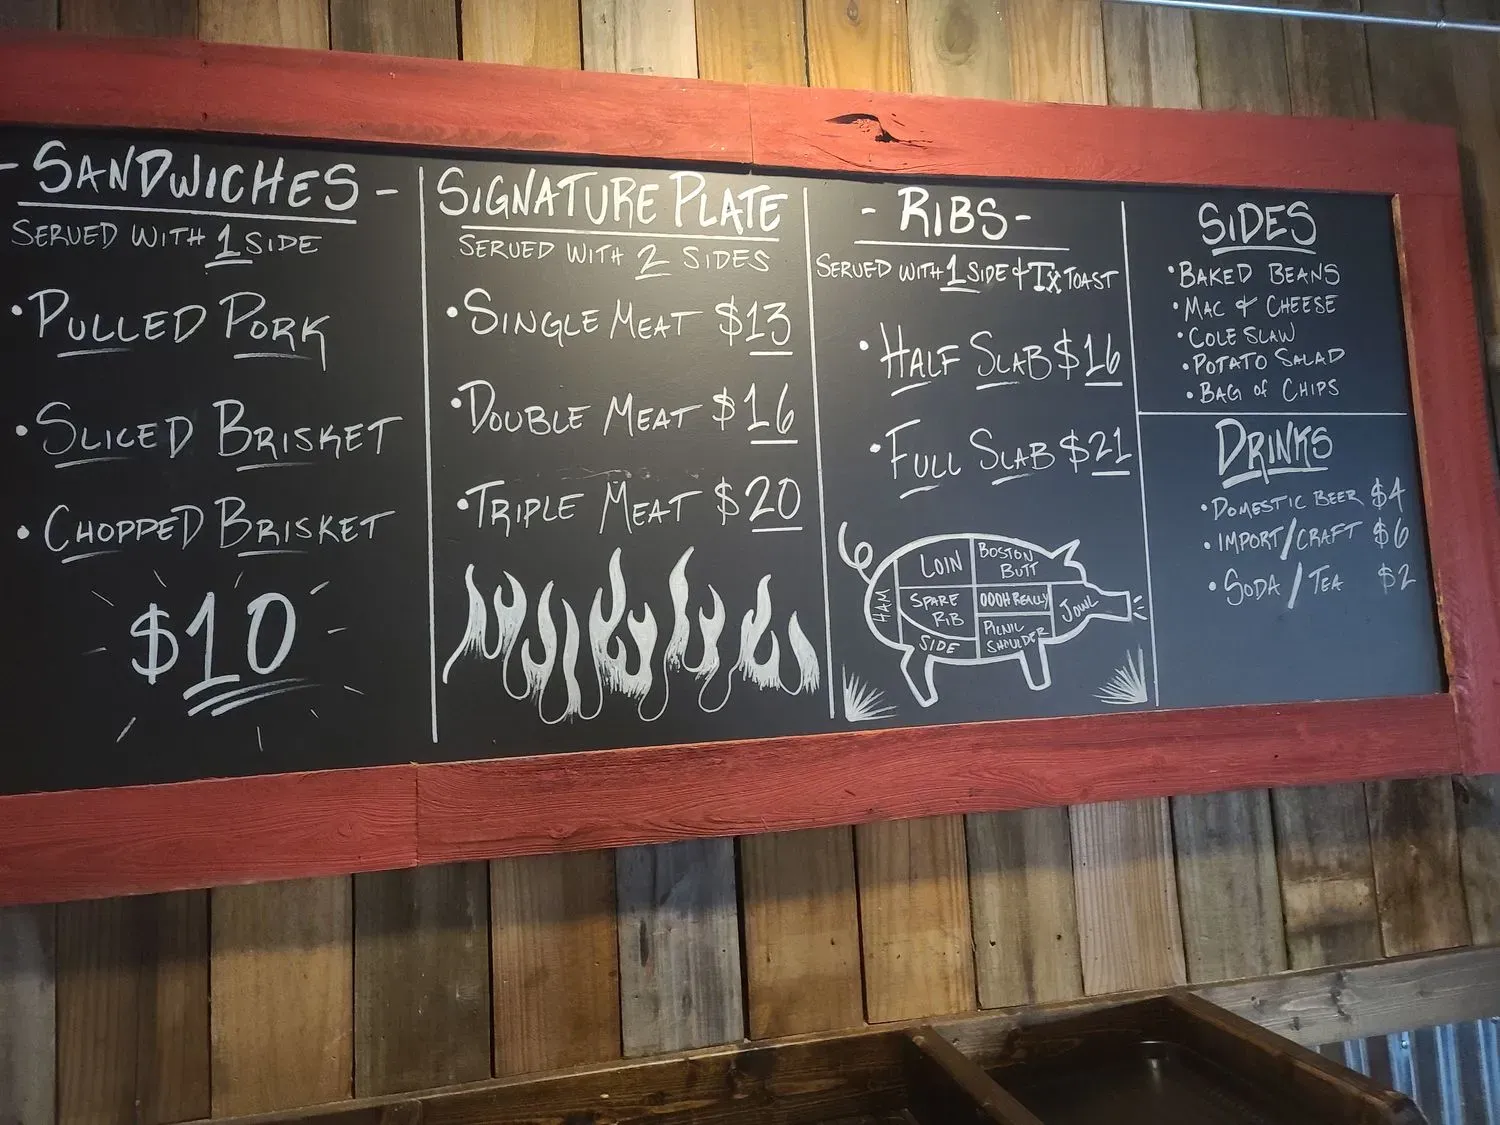 - SANDWICHES -
SERVED WITH 1 SIDE
• PULLED PORK
• SLICED BRISKET
• CHOPPED BRISKET
$10
SIGNATURE PLATE
SERVED WITH 2 SIDES
• SINGLE MEAT $13
• DOUBLE MEAT $16
• TRIPLE MEAT $20
- RIBS -
SERVED WITH 1 SIDE & TX TOAST
• HALF SLAB $16
• FULL SLAB $21
LOIN
BOSTON
BUTT
HAM
SPARE
RIB
OOOH REALLY
JOWL
SIDE
PICNIC
SHOULDER
SIDES
• BAKED BEANS
• MAC & CHEESE
• COLE SLAW
• POTATO SALAD
• BAG of CHIPS
DRINKS
• DOMESTIC BEER $4
• IMPORT/CRAFT $6
• SODA/TEA $2